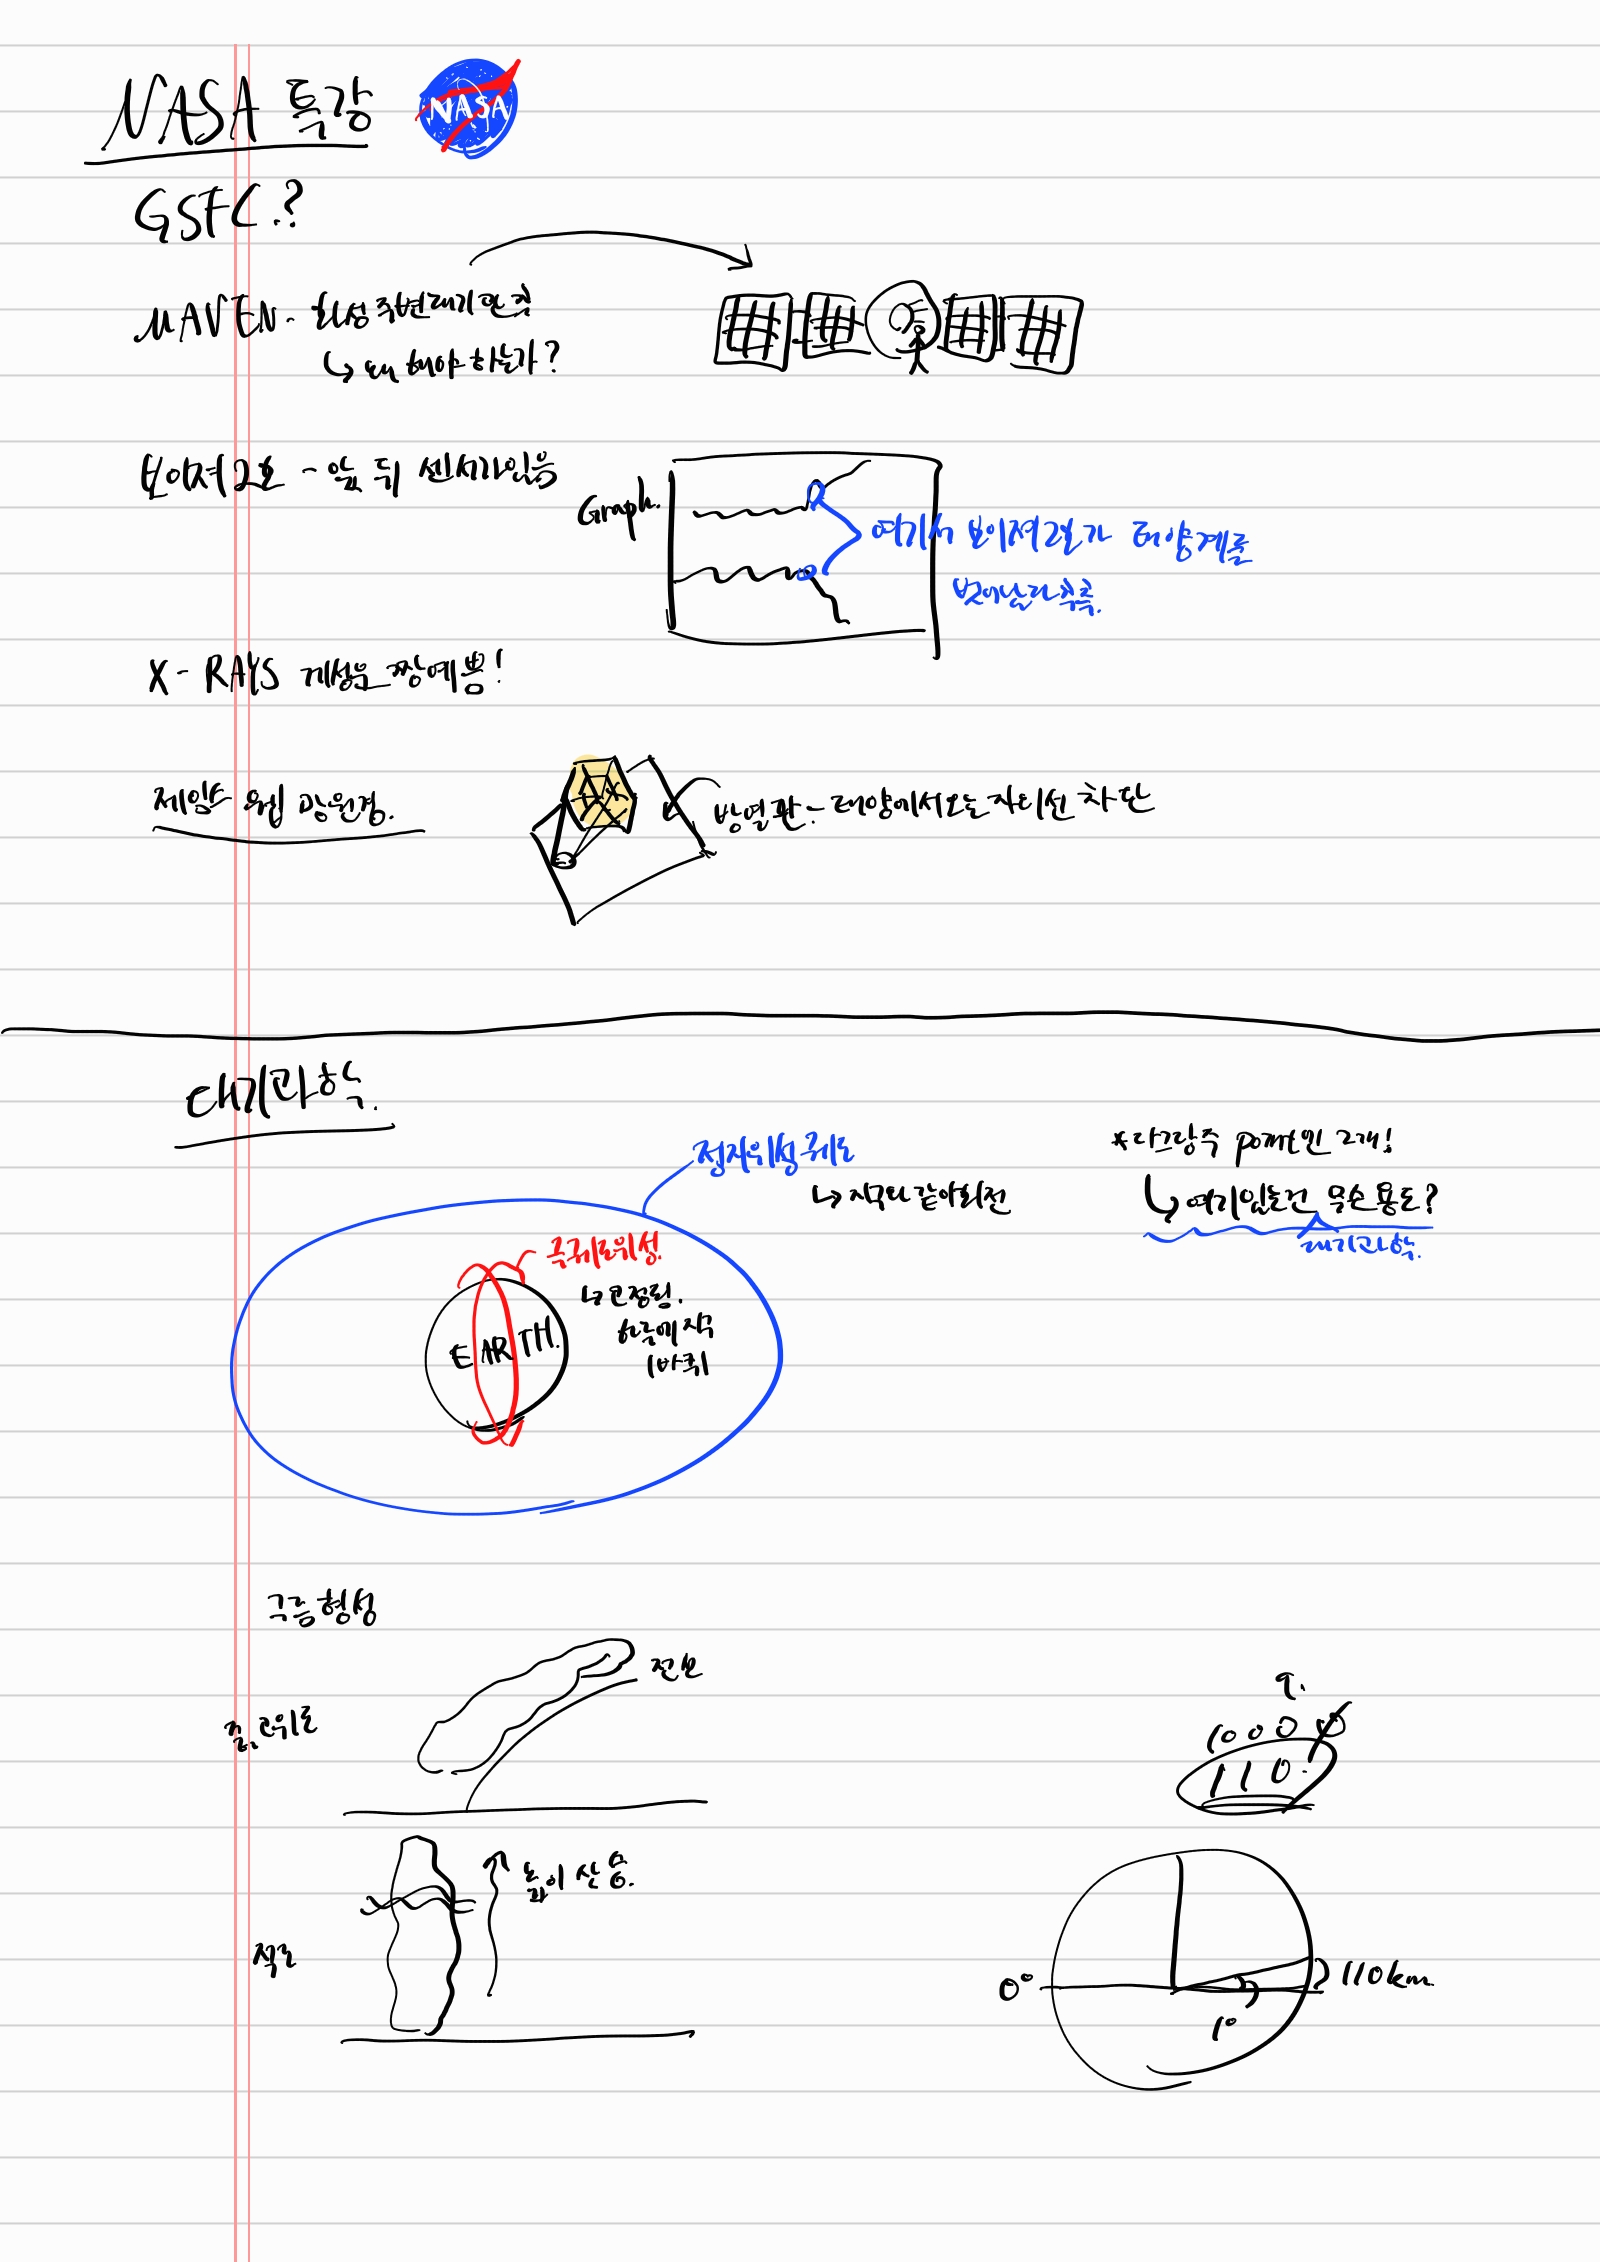 NASA 특강
NASA
GSFC.?
MAVEN - 화성 주변 대기 관측
↳ 왜 해야 하는가?
보이져 2호 - 앞 뒤 센서가 있음
Graph.
여기서 보이져 2호가 태양계를
벗어났다 추측.
X-RAYS 게성운 짱예쁨!
제임스 웹 망원경.
방열판 - 태양에서 오는 자외선 차단
대기과학.
정지위성 궤도
↳ 지구와 같이 회전
*라그랑주 point인 2개!
↳ 여기 있는건 무슨 용도?
대기과학.
극궤도위성.
하루에 지구
1바퀴
EARTH.
구름형성
중,고위도
전선
9.
10000
110.
적도
높이 상승.
0°
1°
110km.